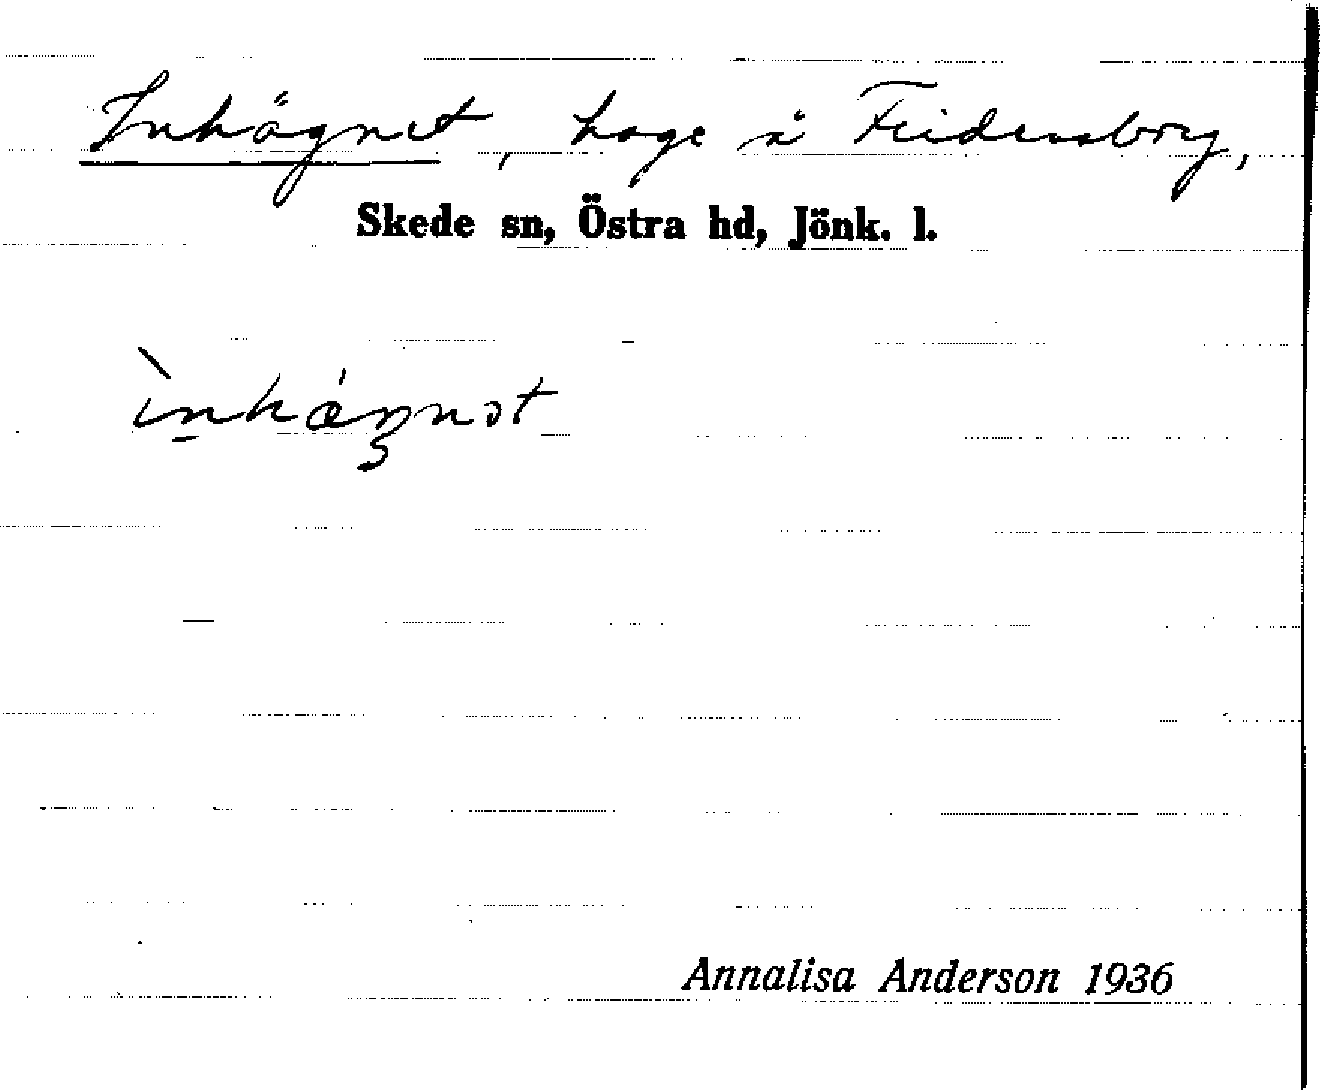 Inhägnet, hage å Fridensborg,
Skede sn, Östra hd, Jönk. l.
ìnhäŋnət
Annalisa Anderson 1936